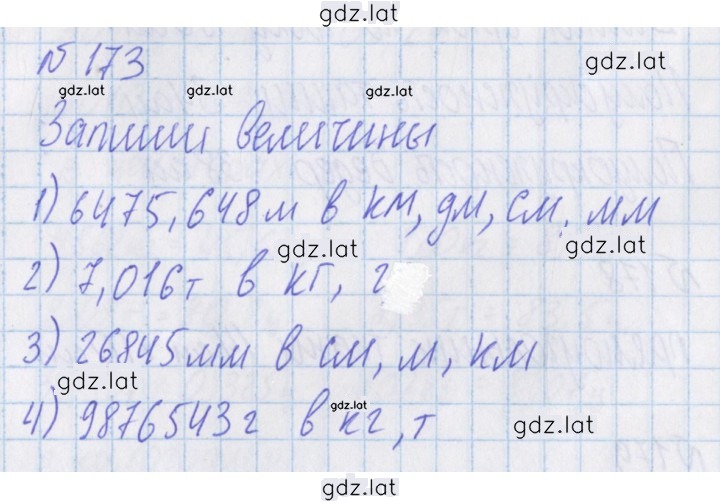 gdz.lat
№ 173
gdz.lat
gdz.lat gdz.lat gdz.lat
Запиши величины
1) 6475,648 м в км, дм, см, мм
gdz.lat gdz.lat
2) 7,016 т в кг, г
3) 26845 мм в см, м, км
gdz.lat
4) 9876543 г в кг, т
gdz.lat gdz.lat
gdz.lat